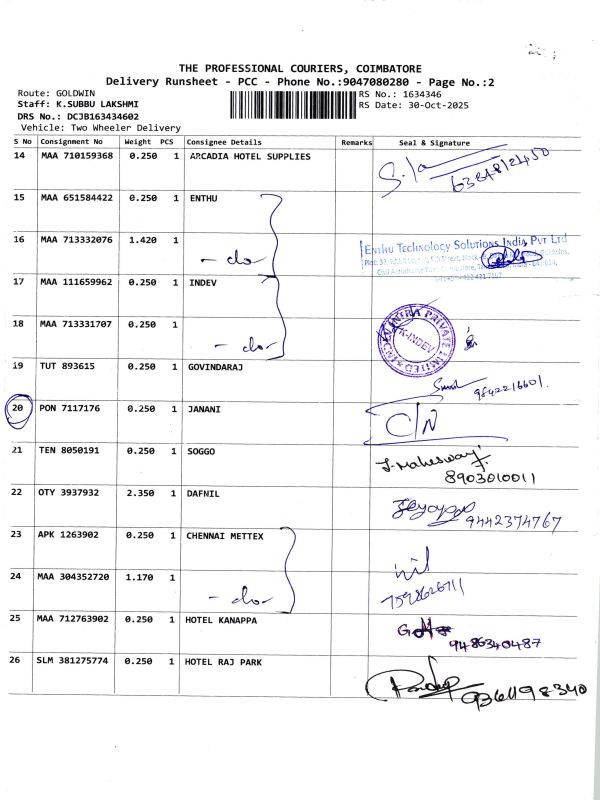 THE PROFESSIONAL COURIERS, COIMBATORE
Delivery Runsheet - PCC - Phone No.:9047080280 - Page No.:2
Route: GOLDWIN
Staff: K.SUBBU LAKSHMI
DRS No.: DCJB163434602
Vehicle: Two Wheeler Delivery
RS No.: 1634346
RS Date: 30-Oct-2025
S No Consignment No Weight PCS Consignee Details Remarks Seal & Signature
14 MAA 710159368 0.250 1 ARCADIA HOTEL SUPPLIES
15 MAA 651584422 0.250 1 ENTHU
16 MAA 713332076 1.420 1 - do-
ENTHU TECHNOLOGY SOLUTIONS INDIA PVT LTD
17 MAA 111659962 0.250 1 INDEV
18 MAA 713331707 0.250 1 - do-
19 TUT 893615 0.250 1 GOVINDARAJ
9842216601.
20 PON 7117176 0.250 1 JANANI C/N
21 TEN 8050191 0.250 1 SOGGO
8903010011
22 OTY 3937932 2.350 1 DAFNIL
9442374767
23 APK 1263902 0.250 1 CHENNAI METTEX
24 MAA 304352720 1.170 1 - do-
25 MAA 712763902 0.250 1 HOTEL KANAPPA
9486340487
26 SLM 381275774 0.250 1 HOTEL RAJ PARK
9361198340